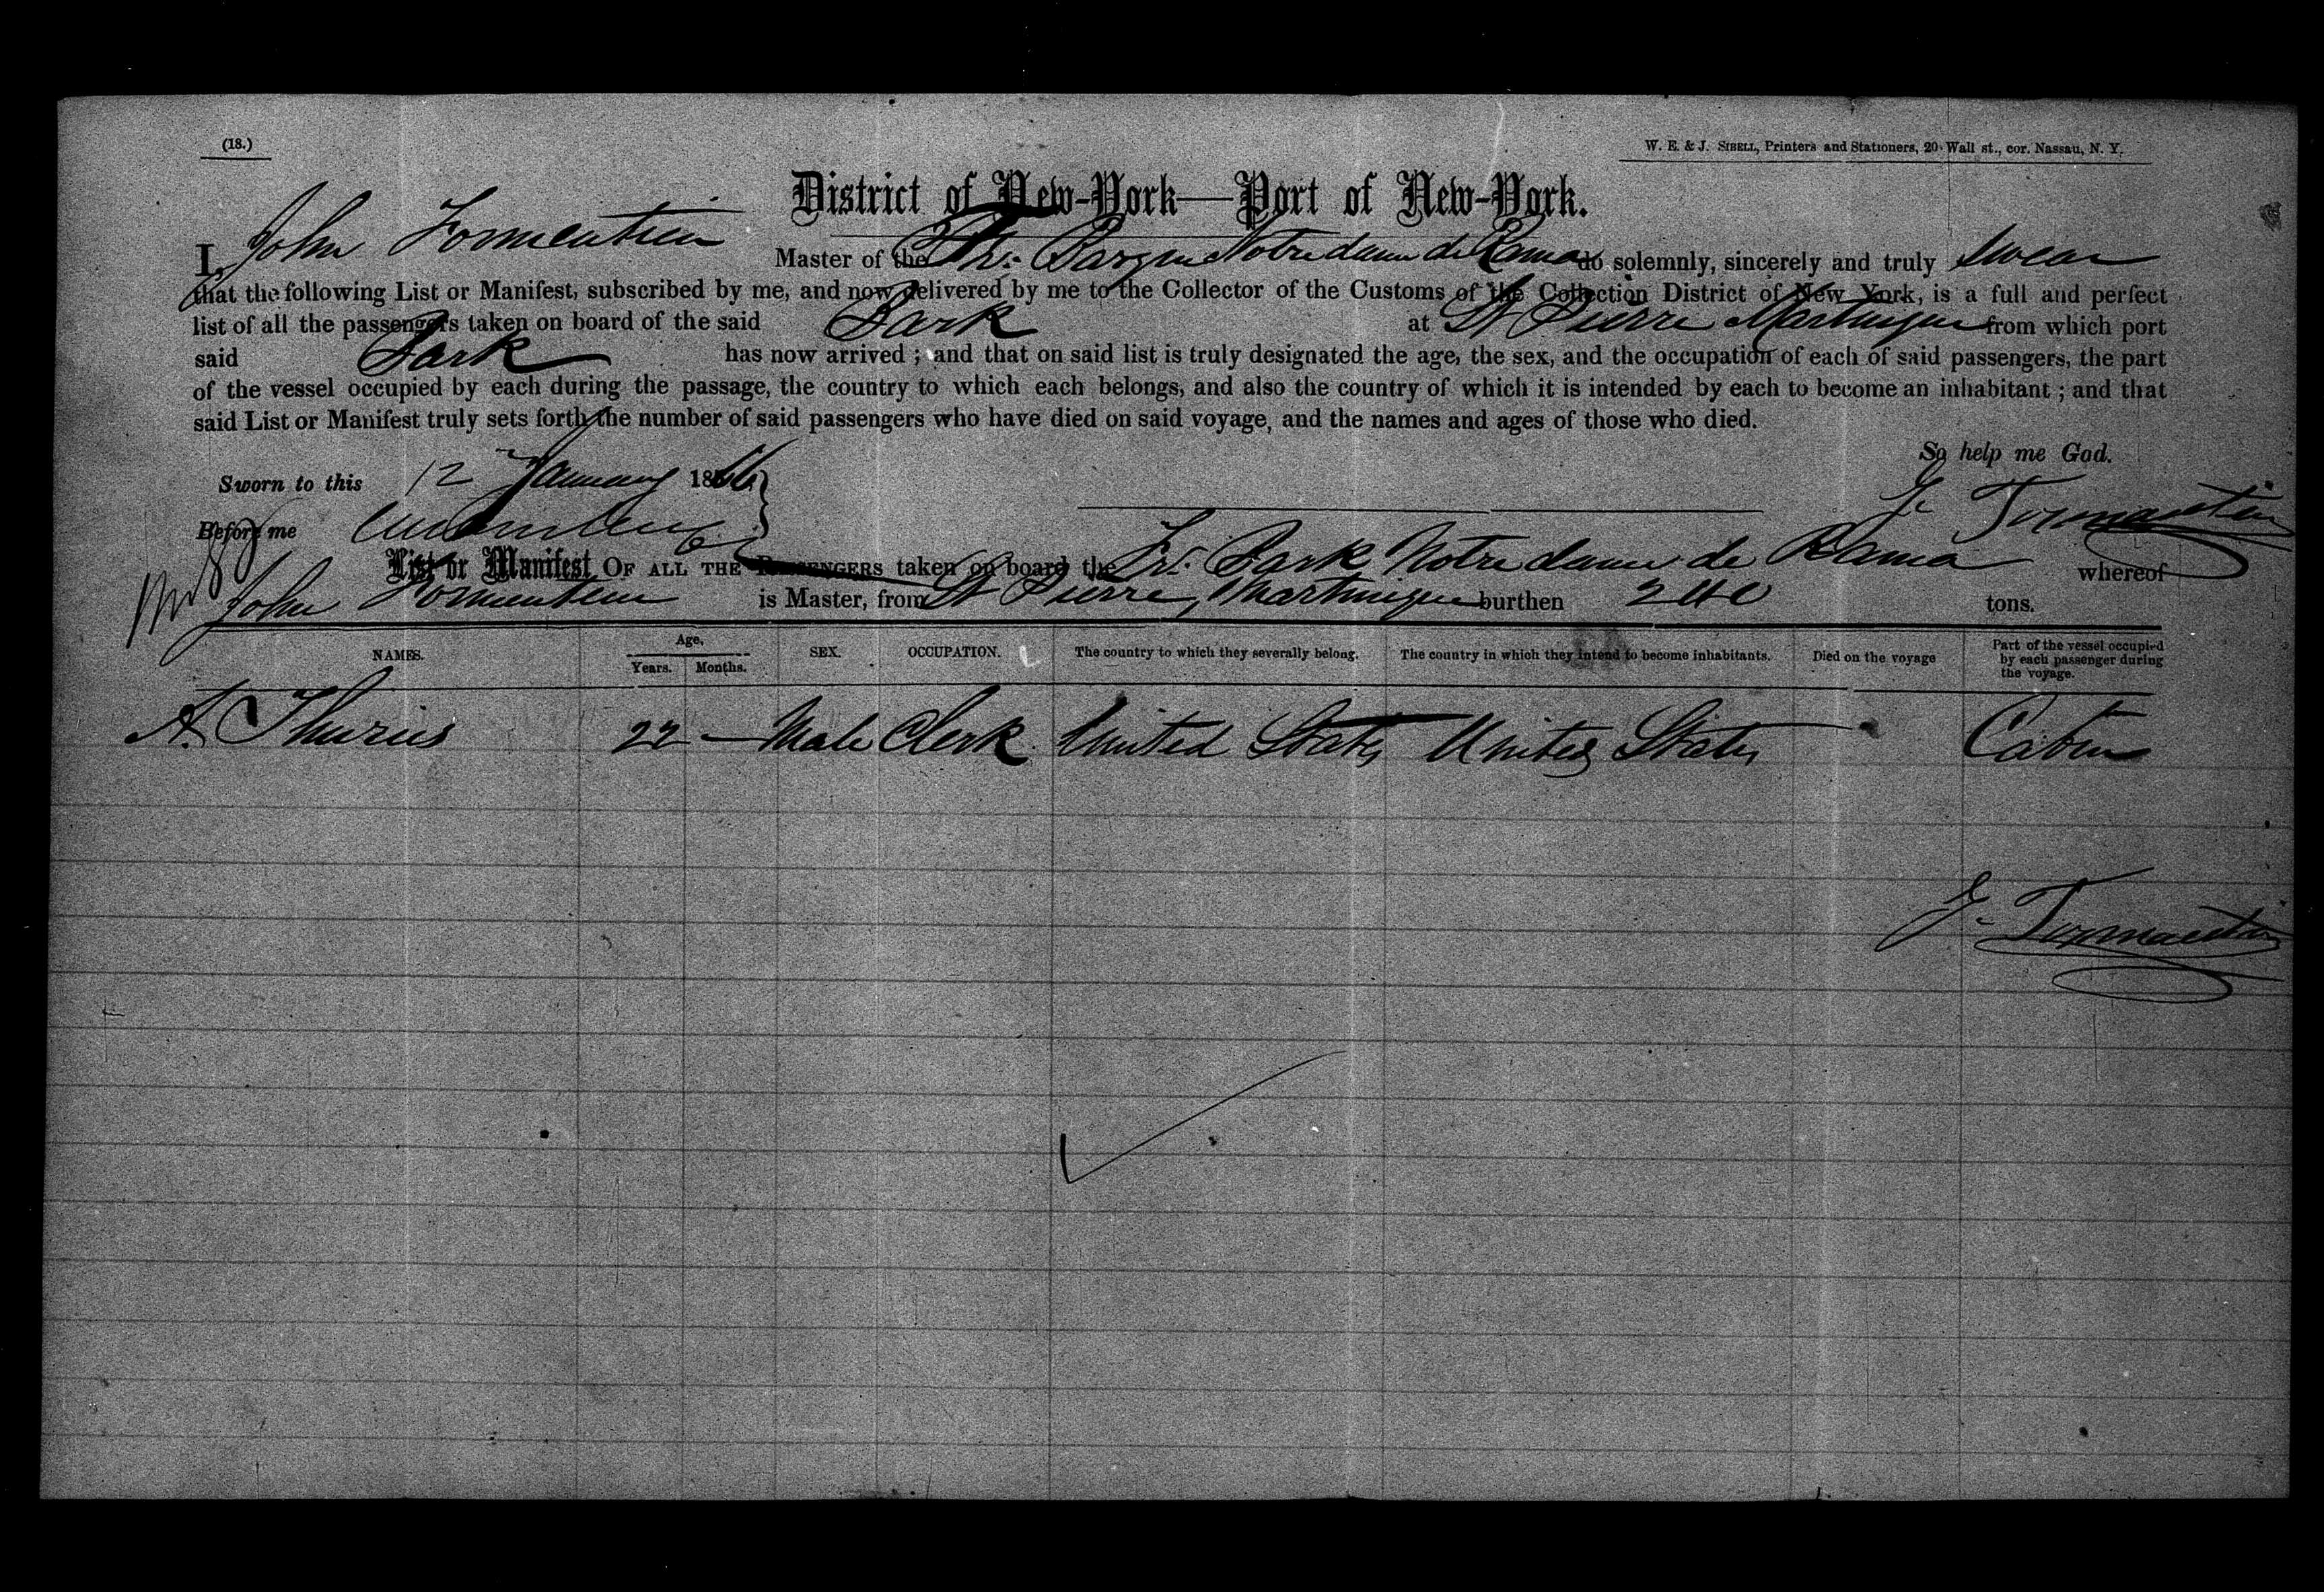 (18.)
W. E. & J. SIBELL, Printers and Stationers, 20 Wall st., cor. Nassau, N. Y.
District of New-York—Port of New-York.
I, John Formentin Master of the Fr. Barque Notre dame de Rama do solemnly, sincerely and truly swear
that the following List or Manifest, subscribed by me, and now delivered by me to the Collector of the Customs of the Collection District of New York, is a full and perfect
list of all the passengers taken on board of the said Bark at St Pierre Martinique from which port
said Bark has now arrived ; and that on said list is truly designated the age, the sex, and the occupation of each of said passengers, the part
of the vessel occupied by each during the passage, the country to which each belongs, and also the country of which it is intended by each to become an inhabitant ; and that
said List or Manifest truly sets forth the number of said passengers who have died on said voyage, and the names and ages of those who died.
So help me God.
Sworn to this 12 January 1866
J. Formentin
Before me
List or Manifest OF ALL THE PASSENGERS taken on board the Fr. Bark Notre dame de Rama whereof
John Formentin is Master, from St Pierre, Martinique burthen 240 tons.
NAMES. Age. Years. Months. SEX. OCCUPATION. The country to which they severally belong. The country in which they intend to become inhabitants. Died on the voyage Part of the vessel occupied by each passenger during the voyage.
A. Thurius 22 — Male Clerk United States United States Cabin
J. Formentin